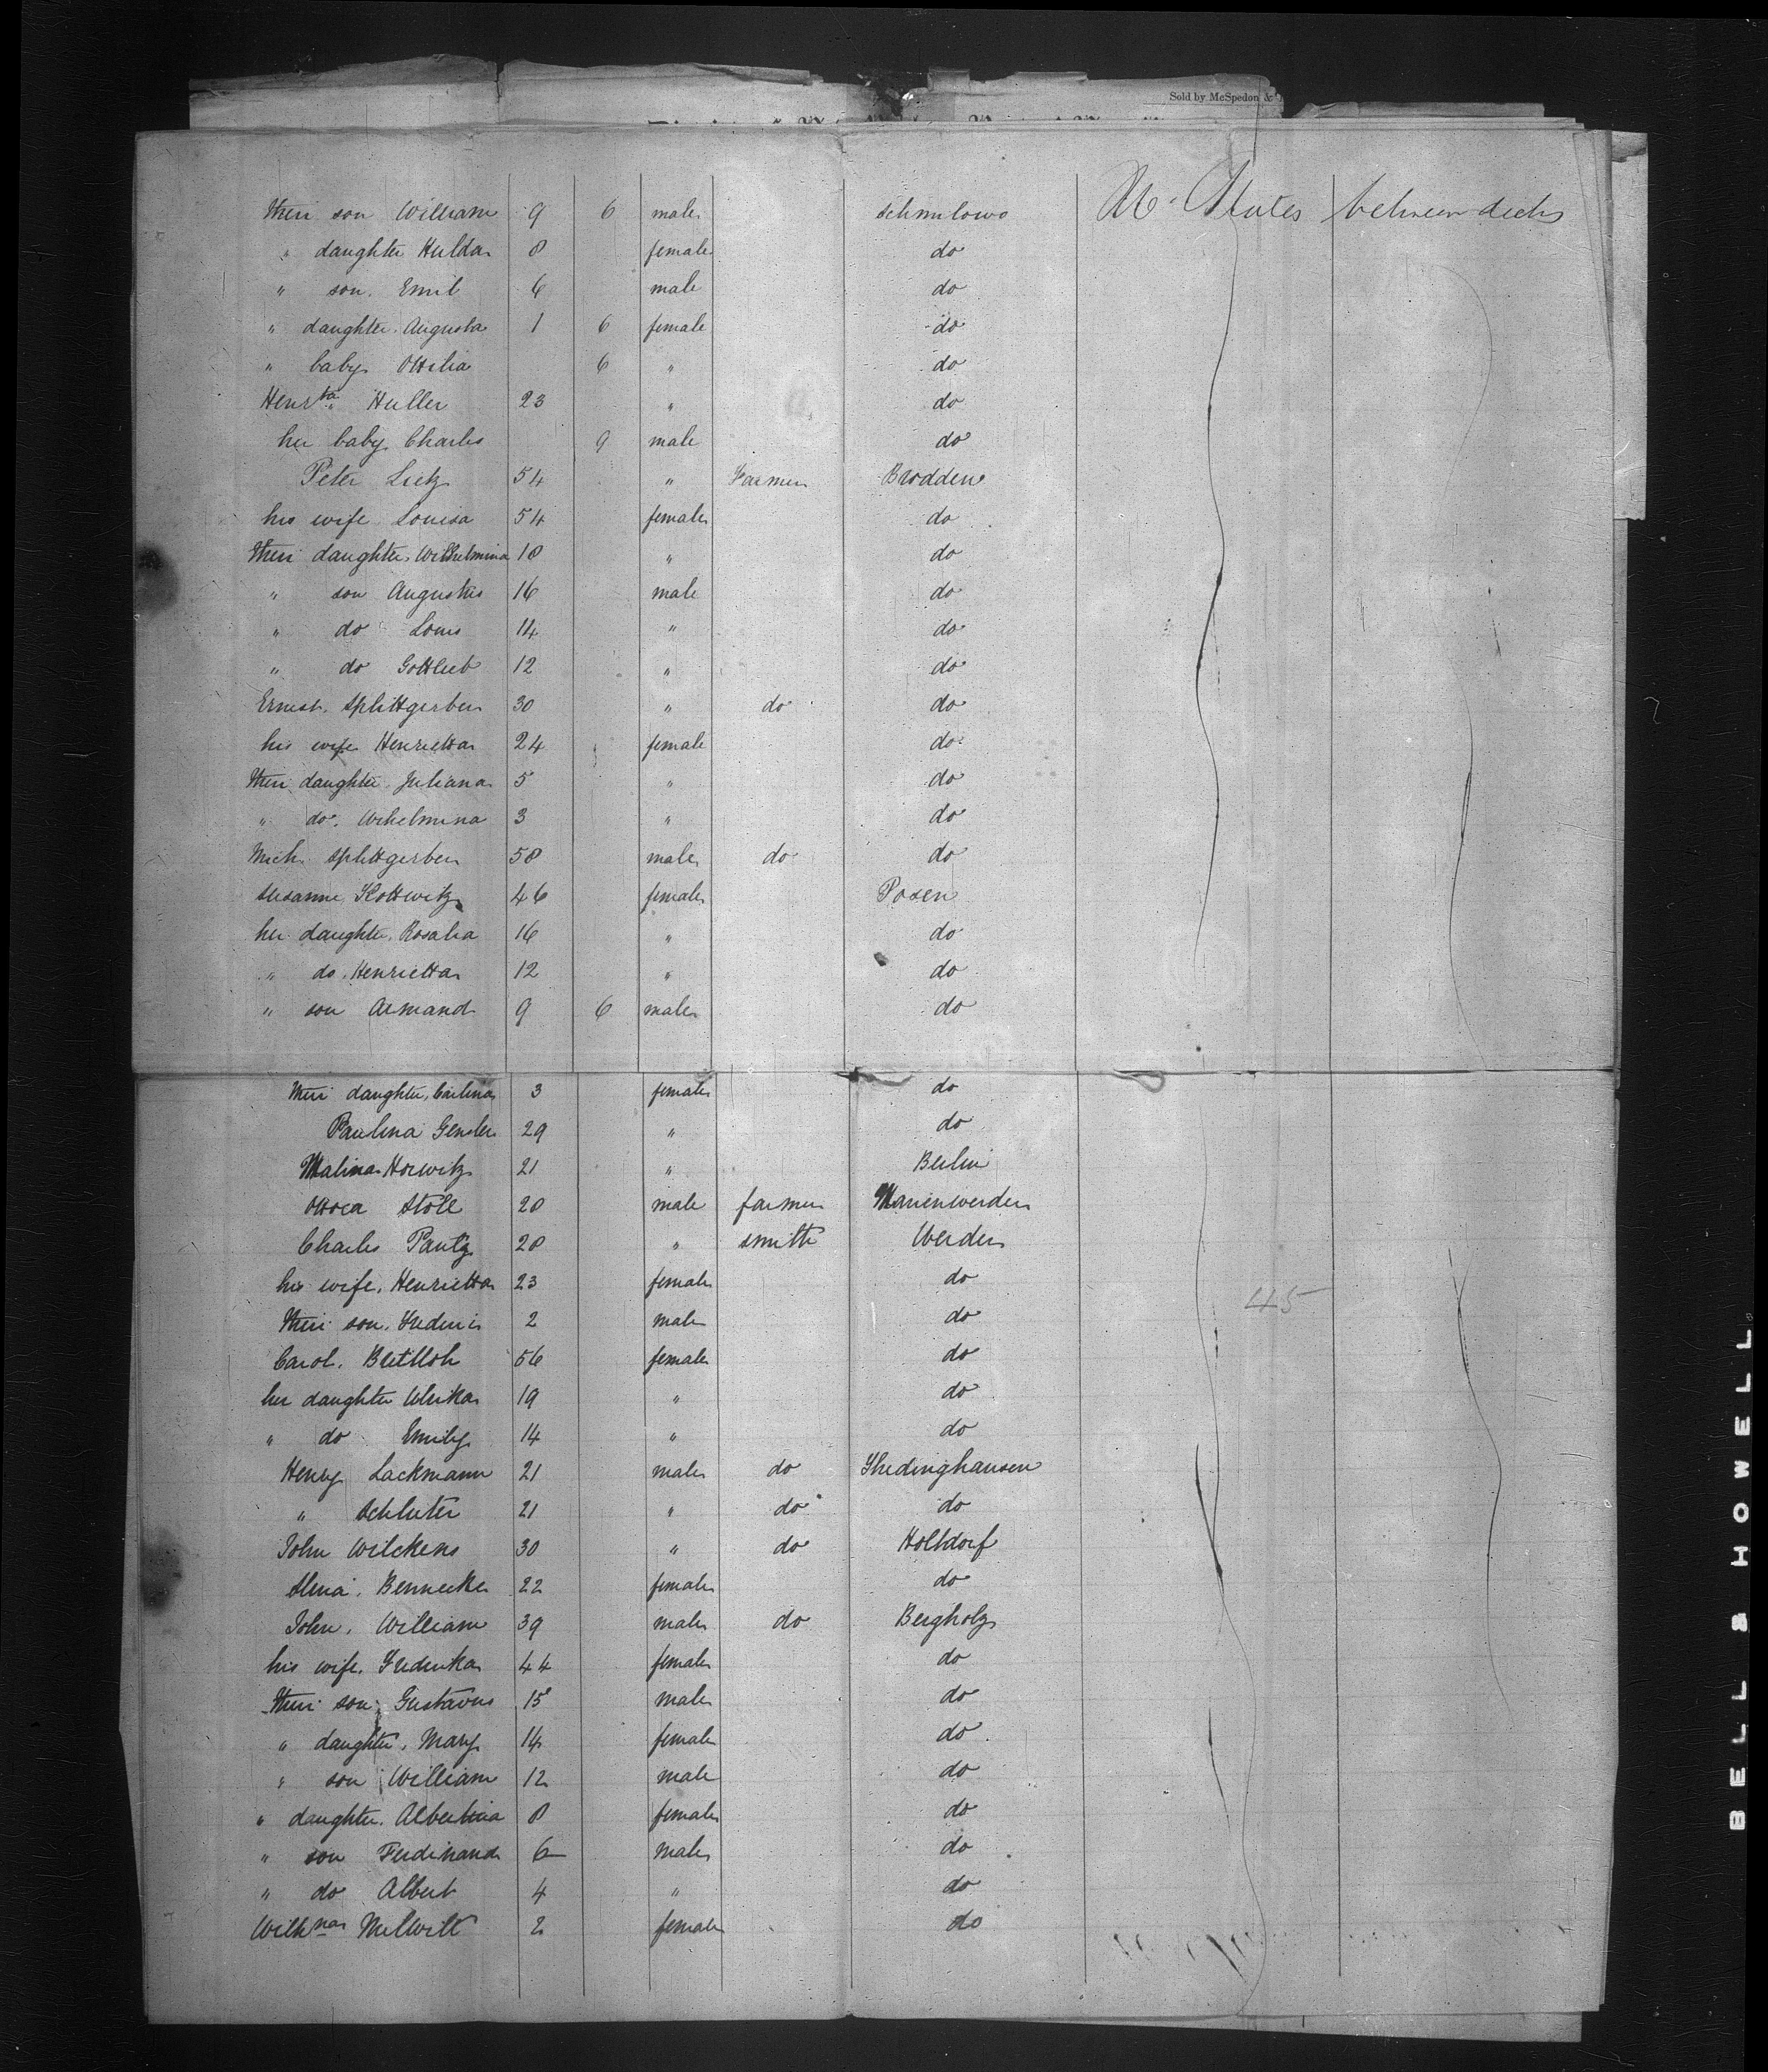 Sold by McSpedon &
their son William 9 6 male Schmilowo U. States between decks
" daughter Hulda 8 female do
" son Emil 6 male do
" daughter Augusta 1 6 female do
" baby Ottilia 6 " do
Henrtta Huller 23 " do
her baby Charles 9 male do
Peter Lietz 54 " Farmer Brodden
his wife Louisa 54 female do
their daughter Wilhelmina 18 " do
" son Augustus 16 male do
" do Louis 14 " do
" do Gottlieb 12 " do
Ernest Splittgerber 30 " do do
his wife Henrietta 24 female do
their daughter Juliana 5 " do
" do Wilhelmina 3 " do
Mich. Splittgerber 58 male do do
Susanne Kottwitz 46 female Posen
her daughter Rosalia 16 " do
" do Henrietta 12 " do
" son Armand 9 6 male do
their daughter, Carlina 3 female do
Paulina Gensler 29 " do
Malina Horwitz 21 " Berlin
Stoll 20 male farmer Marienwerder
Charles Pautz 28 " smith Werder
his wife, Henrietta 23 female do
their son, Frederic 2 male do
45
Carol. 56 female do
her daughter Ulrika 19 " do
" do Emily 14 " do
Henry Lackmann 21 male do Thedinghausen
" Schluter 21 " do do
John Wilckens 30 " do Holtdorf
Bennecke 22 female do
John, William 39 male do Bergholz
his wife, Frederika 44 female do
their son, Gustavus 15 male do
" daughter, Mary 14 female do
" son William 12 male do
" daughter, Albertina 8 female do
" son Ferdinand 6 male do
" do Albert 4 " do
Wilhna 2 female do
BELL & HOWELL